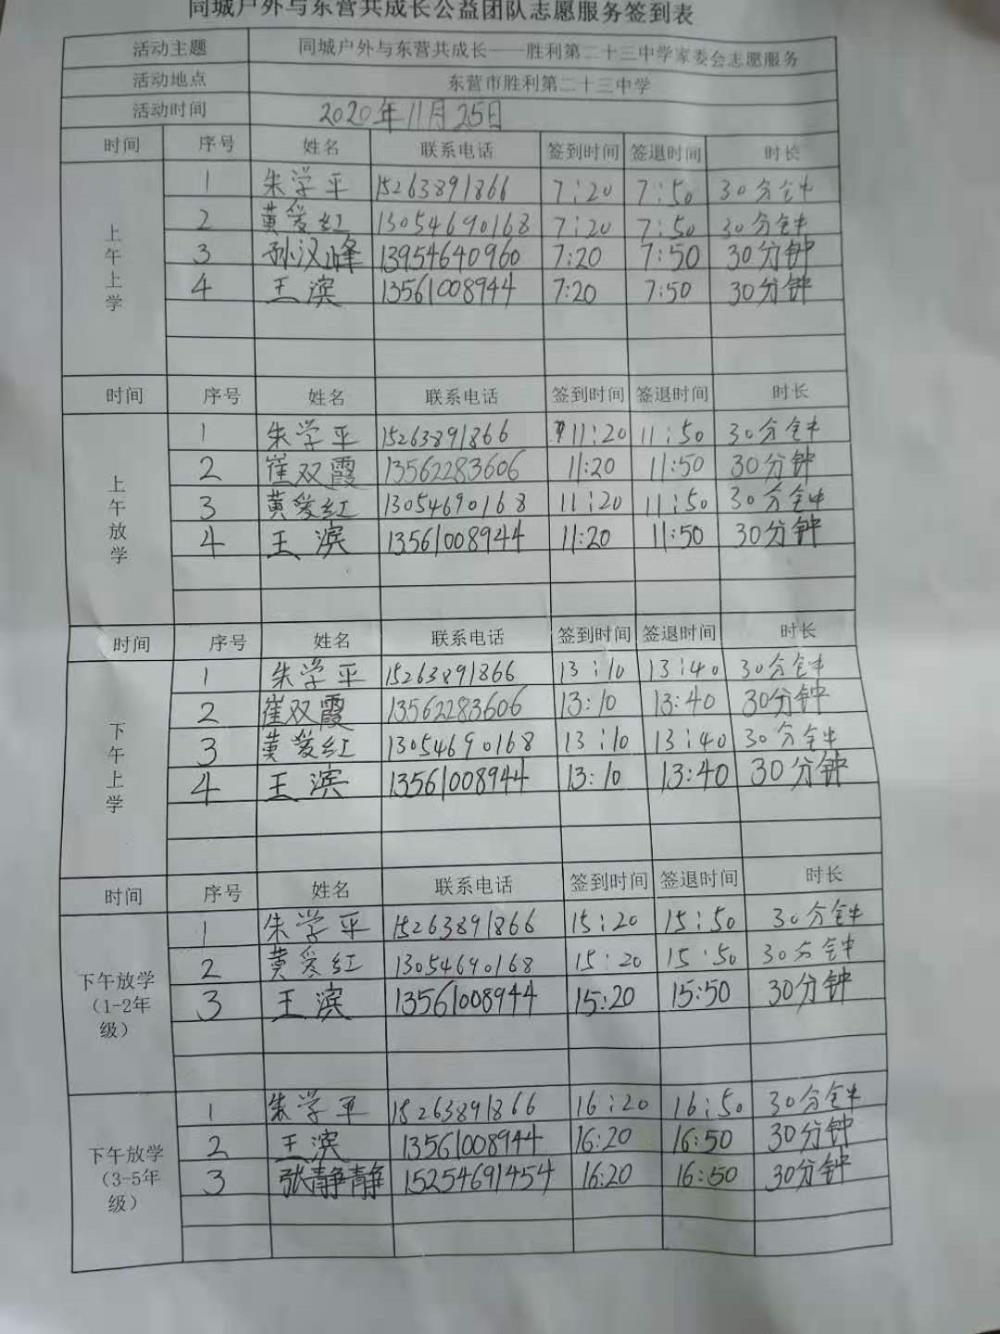 同城户外与东营共成长公益团队志愿服务签到表
活动主题 同城户外与东营共成长——胜利第二十三中学家委会志愿服务
活动地点 东营市胜利第二十三中学
活动时间 2020年11月25日
时间 序号 姓名 联系电话 签到时间 签退时间 时长
上午上学
1 朱学平 15263891866 7:20 7:50 30分钟
2 黄爱红 13054690168 7:20 7:50 30分钟
3 孙汉峰 13954640960 7:20 7:50 30分钟
4 王滨 13561008944 7:20 7:50 30分钟
时间 序号 姓名 联系电话 签到时间 签退时间 时长
上午放学
1 朱学平 15263891866 11:20 11:50 30分钟
2 崔双霞 13562283606 11:20 11:50 30分钟
3 黄爱红 13054690168 11:20 11:50 30分钟
4 王滨 13561008944 11:20 11:50 30分钟
时间 序号 姓名 联系电话 签到时间 签退时间 时长
下午上学
1 朱学平 15263891866 13:10 13:40 30分钟
2 崔双霞 13562283606 13:10 13:40 30分钟
3 黄爱红 13054690168 13:10 13:40 30分钟
4 王滨 13561008944 13:10 13:40 30分钟
时间 序号 姓名 联系电话 签到时间 签退时间 时长
下午放学
（1-2年
级）
1 朱学平 15263891866 15:20 15:50 30分钟
2 黄爱红 13054690168 15:20 15:50 30分钟
3 王滨 13561008944 15:20 15:50 30分钟
下午放学
（3-5年
级）
1 朱学平 15263891866 16:20 16:50 30分钟
2 王滨 13561008944 16:20 16:50 30分钟
3 张静静 15254691454 16:20 16:50 30分钟